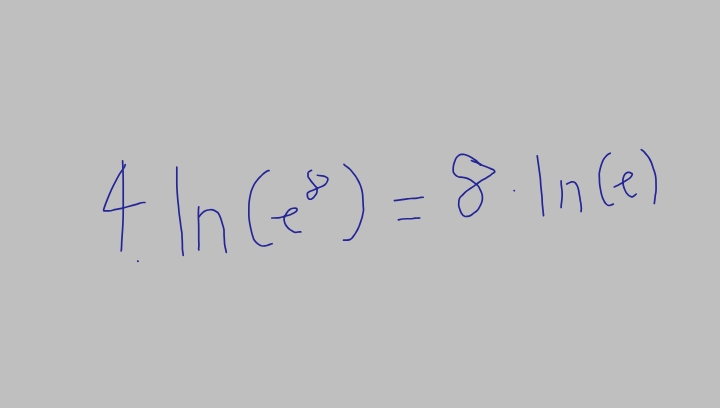 4 ln(e⁸) = 8 · ln(e)